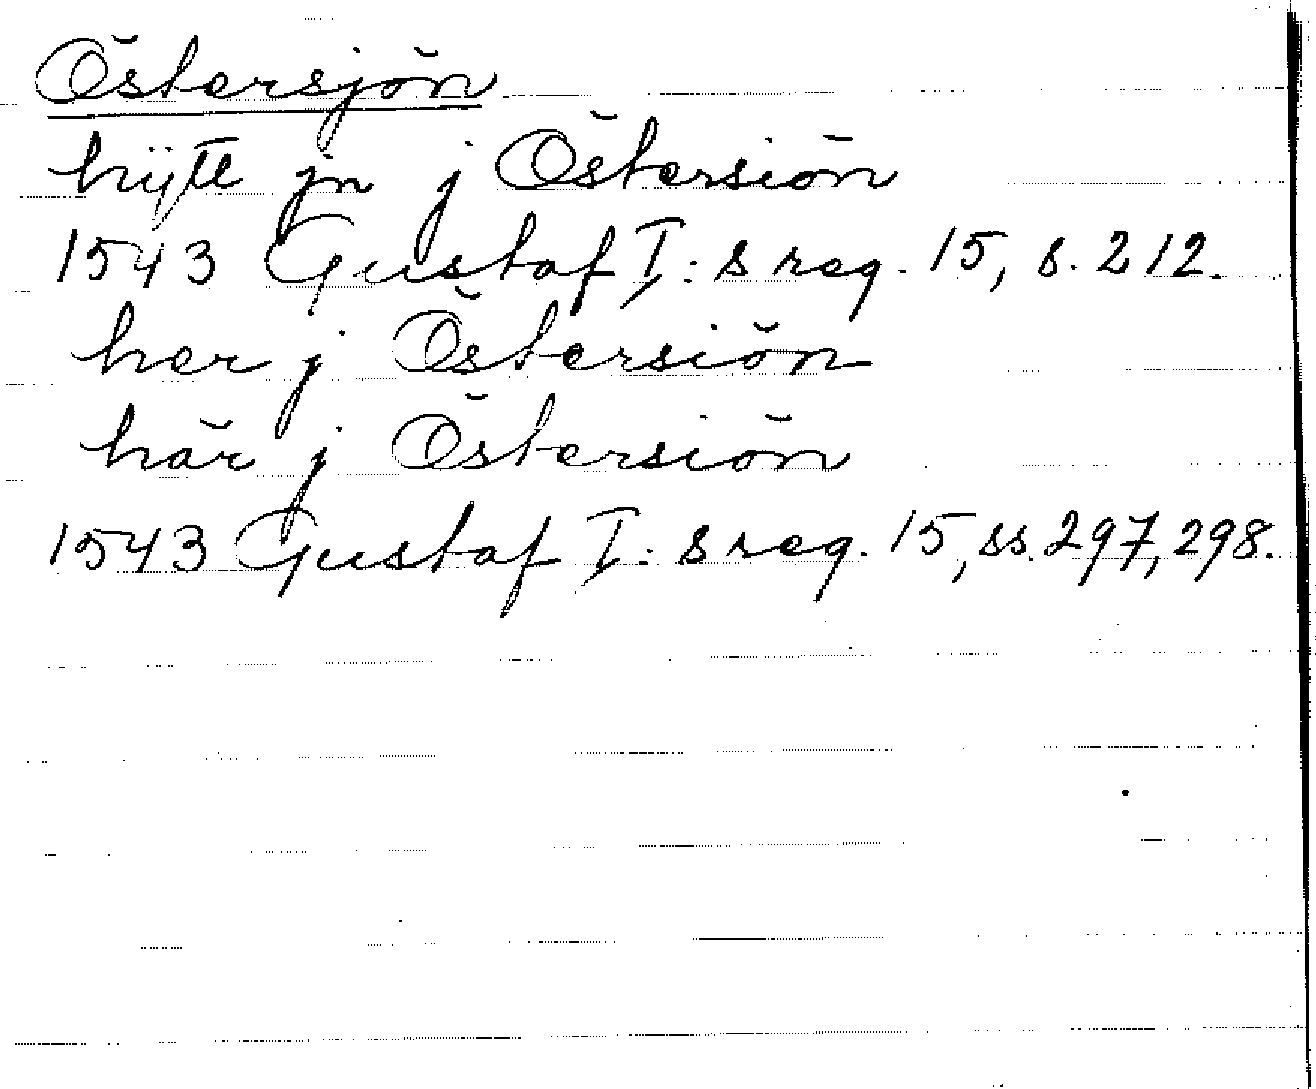 Östersjön
hijtt jn j Östersiön
1543 Gustaf I:s reg. 15, s. 212.
her j Östersiön
här j Östersiön
1543 Gustaf I:s reg. 15, ss. 297, 298.